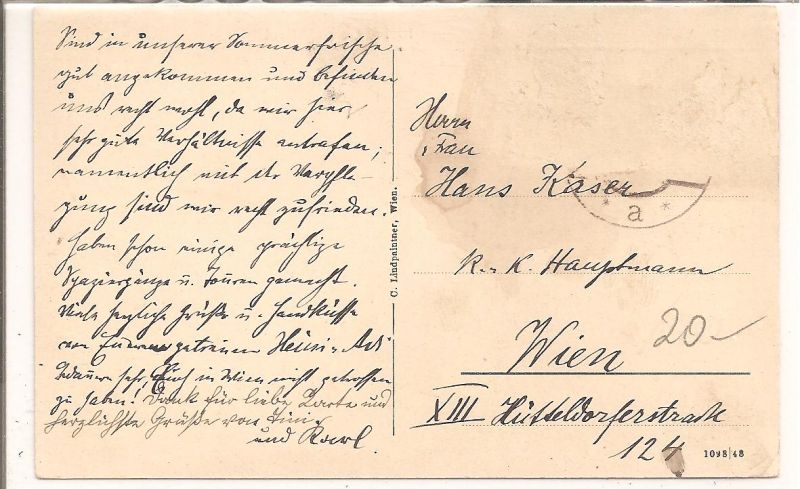 Sind in unserer Sommerfrische
gut angekommen und befinden
uns recht wohl, da wir hier
sehr gute Verhältnisse antrafen;
namentlich mit der Verpfle-
gung sind wir recht zufrieden.
Haben schon einige prächtige
Spaziergänge u. Touren gemacht.
Viele herzliche Grüße u. Handküsse
von Eueren getreuen Heini-
sehr, Euch in Wien nicht getroffen
zu haben! Dank für liebe Karte und
herzlichste Grüße von
und Karl.
C. Lindpaintner, Wien.
Herrn
Frau
Hans Kaser
* a *
k. u. k. Hauptmann
20-
Wien
XIII Hütteldorferstraße
124
1098|48